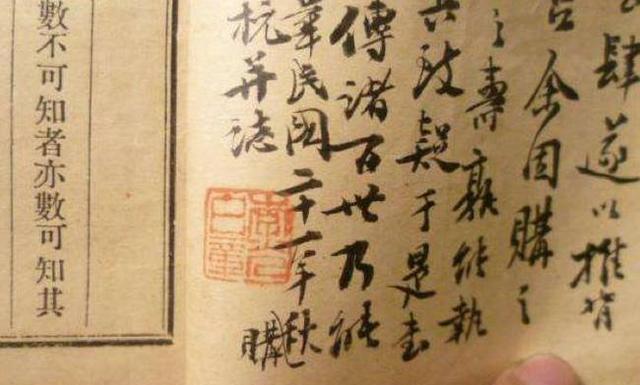 肆遂以推背
占余因購之
之壽孰能執
共致疑于是書
傳諸百世乃能
華民國二十一年秋購
杭并誌
數不可知者亦數可知其